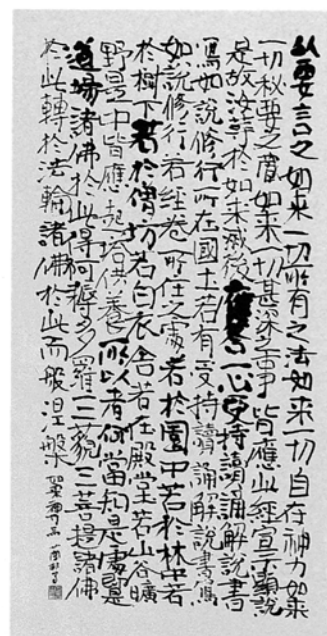 以要言之如来一切所有之法如来一切自在神力如来
一切秘要之蔵如来一切甚深之事皆應此經宣示顯説
是故汝等於如来滅後應當一心受持讀誦解説書
寫如説修行所在國土若有受持讀誦解説書寫
如説修行若經巻所住之處若於園中若於林中若
於樹下若於僧坊若白衣舎若在殿堂若山谷曠
野是中皆應起塔供養所以者何當知是處即是
道場諸佛於此得阿耨多羅三藐三菩提諸佛
於此轉於法輪諸佛於此而般涅槃